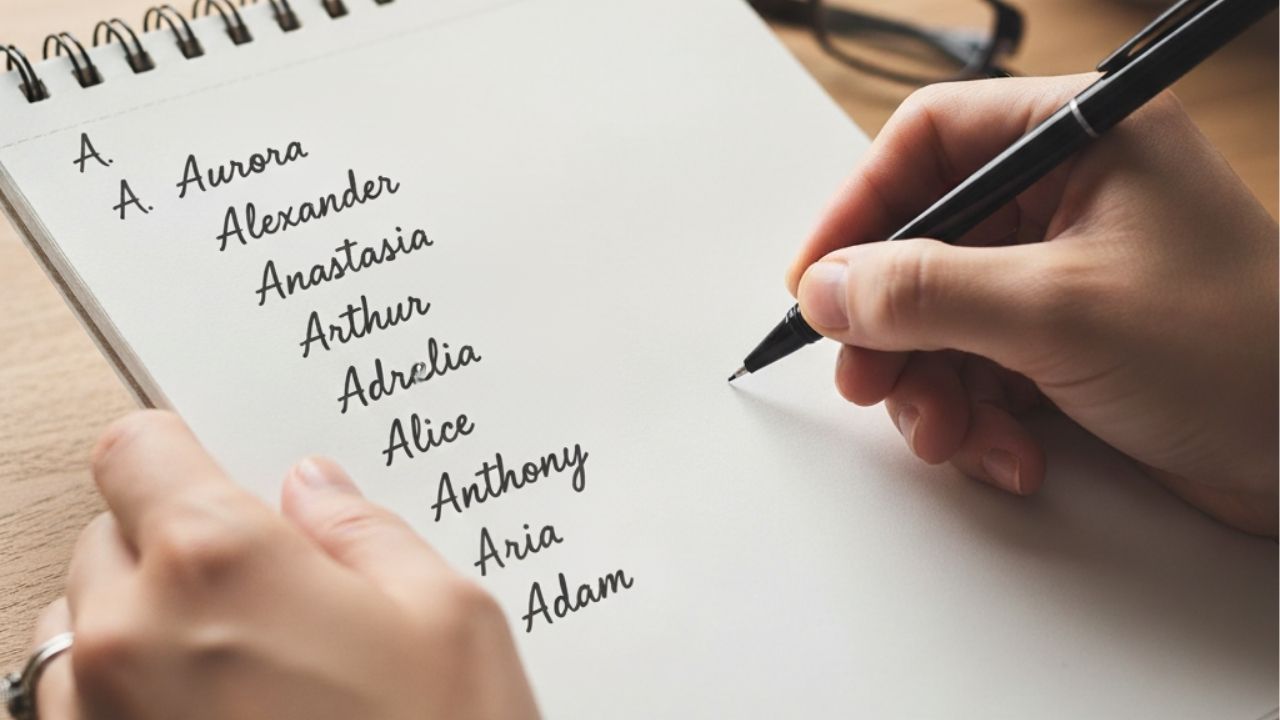 A.
A. Aurora
Alexander
Anastasia
Arthur
Adrelia
Alice
Anthony
Aria
Adam